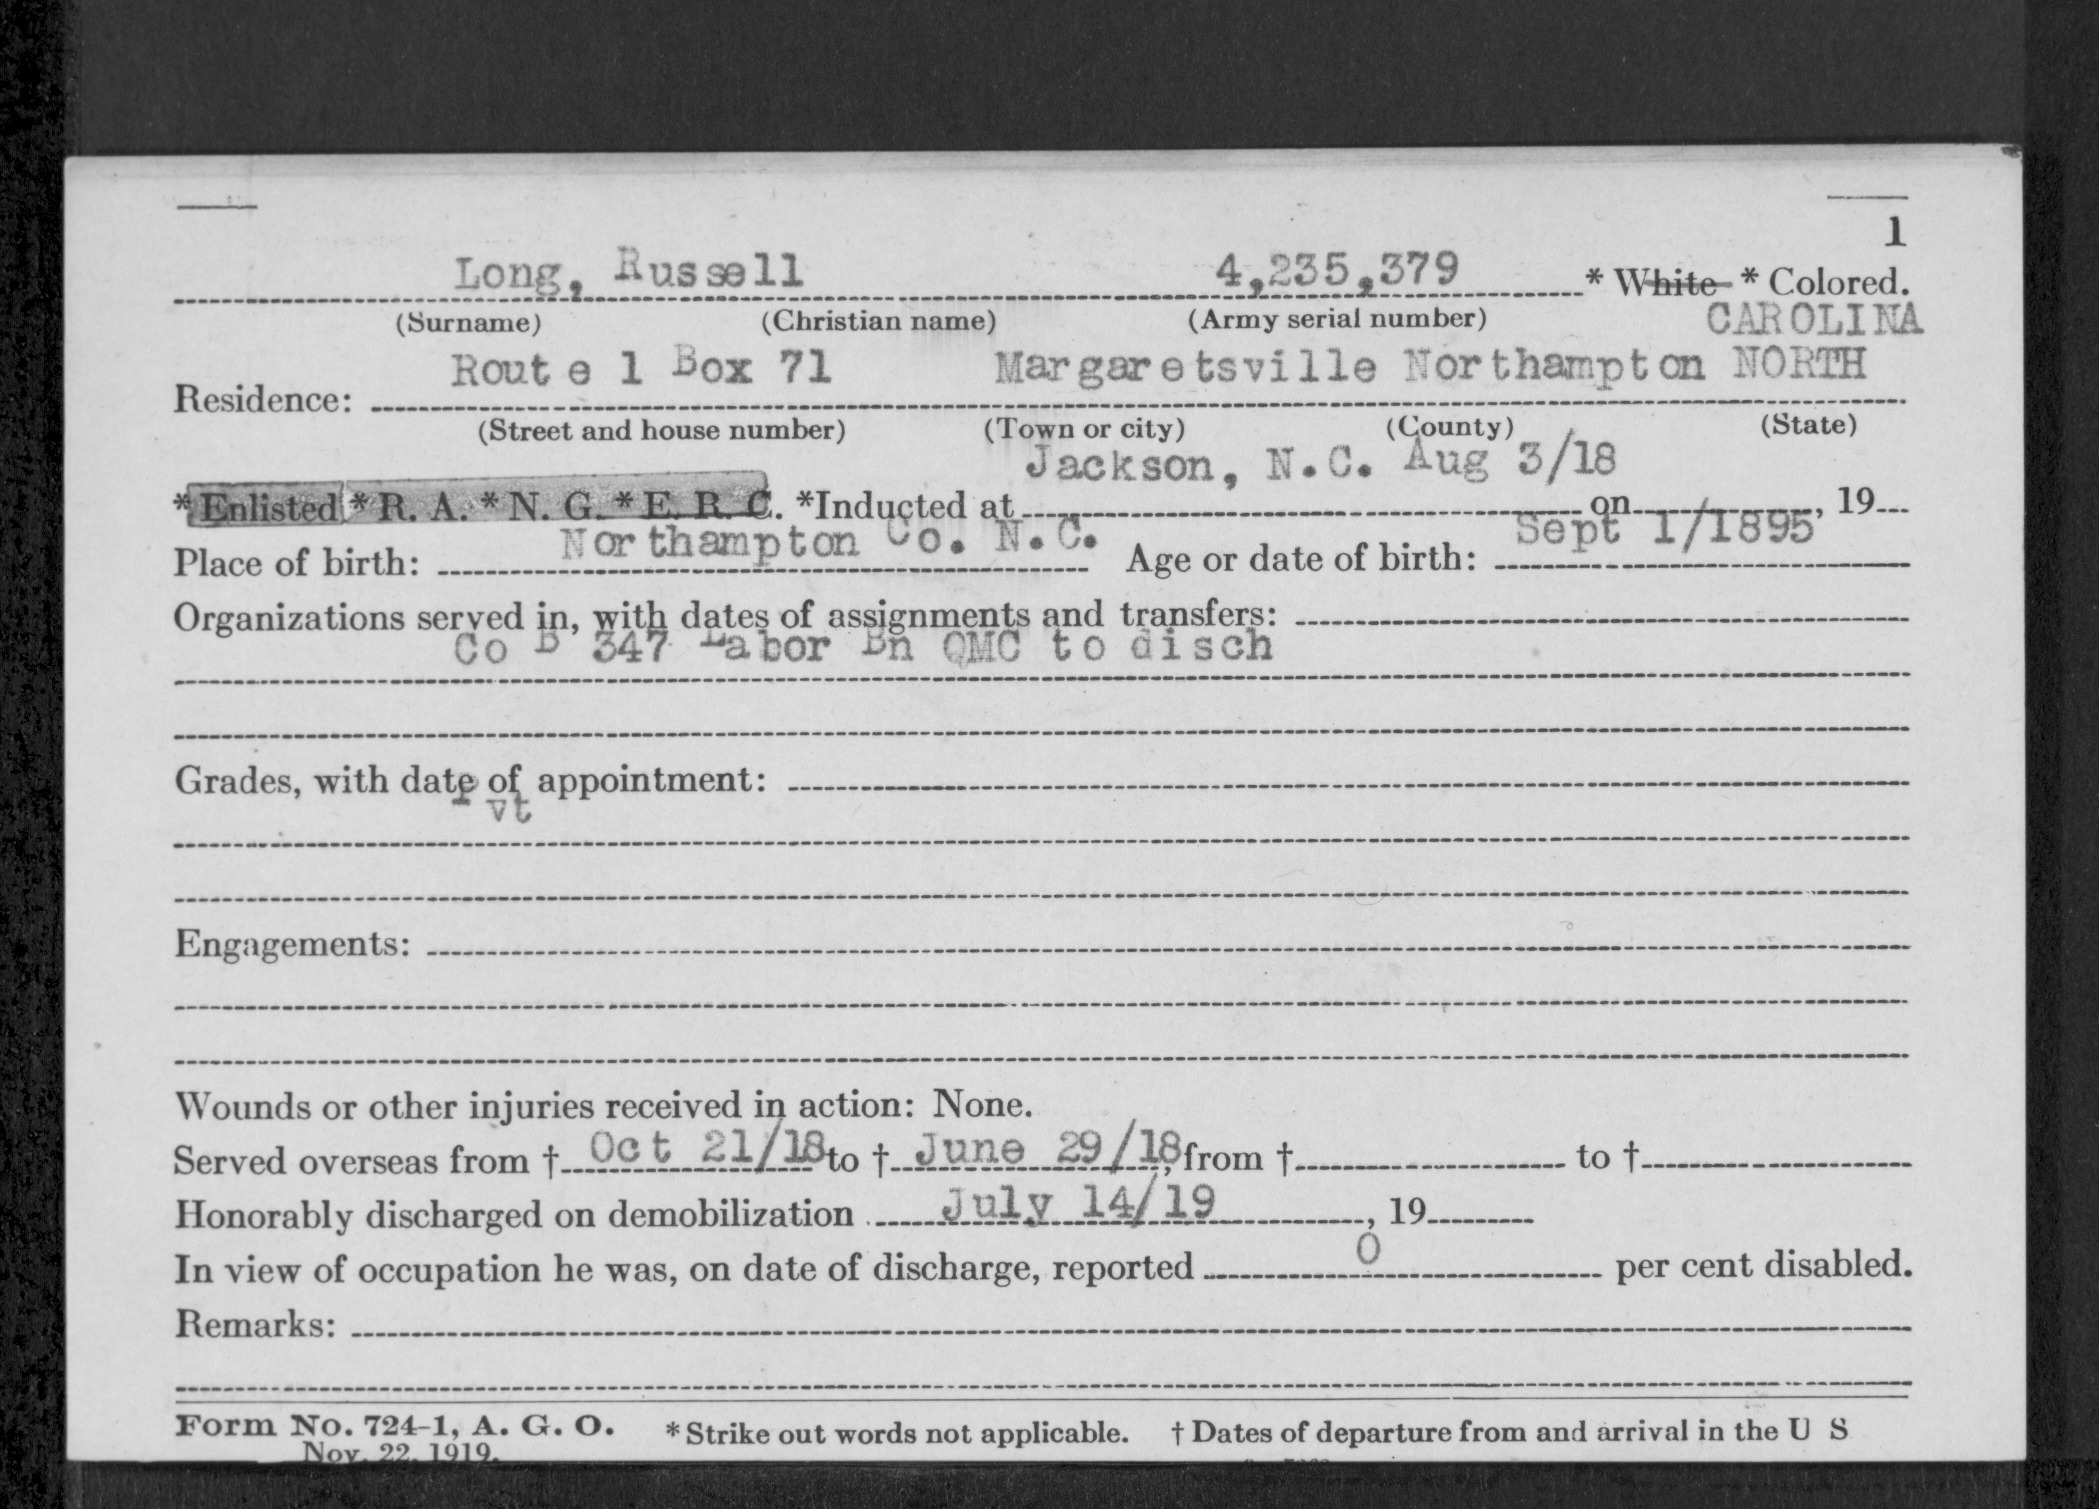 1
Long, Russell 4,235,379 * White * Colored.
(Surname) (Christian name) (Army serial number) CAROLINA
Route 1 Box 71 Margaretsville Northampton NORTH
Residence:
(Street and house number) (Town or city) (County) (State)
Jackson, N.C. Aug 3/18
*Enlisted *R. A. *N. G. *E. R. C. *Inducted at on , 19
Northampton Co. N.C. Sept 1/1895
Place of birth: Age or date of birth:
Organizations served in, with dates of assignments and transfers:
Co B 347 Labor Bn QMC to disch
Grades, with date of appointment:
Pvt
Engagements:
Wounds or other injuries received in action: None.
Served overseas from † Oct 21/18 to † June 29/18, from † to †
Honorably discharged on demobilization July 14/19 , 19
In view of occupation he was, on date of discharge, reported 0 per cent disabled.
Remarks:
Form No. 724-1, A. G. O. *Strike out words not applicable. †Dates of departure from and arrival in the U S
Nov. 22, 1919.